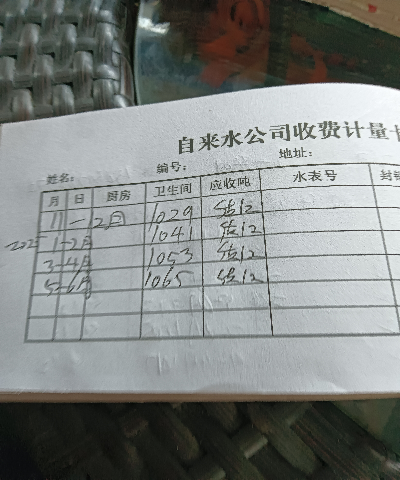 自来水公司收费计量卡
姓名： 编号： 地址：
月 日 厨房 卫生间 应收吨 水表号 封
11-12月 1029 估12
2025 1-2月 1041 估12
3-4月 1053 估12
5-6月 1065 估12